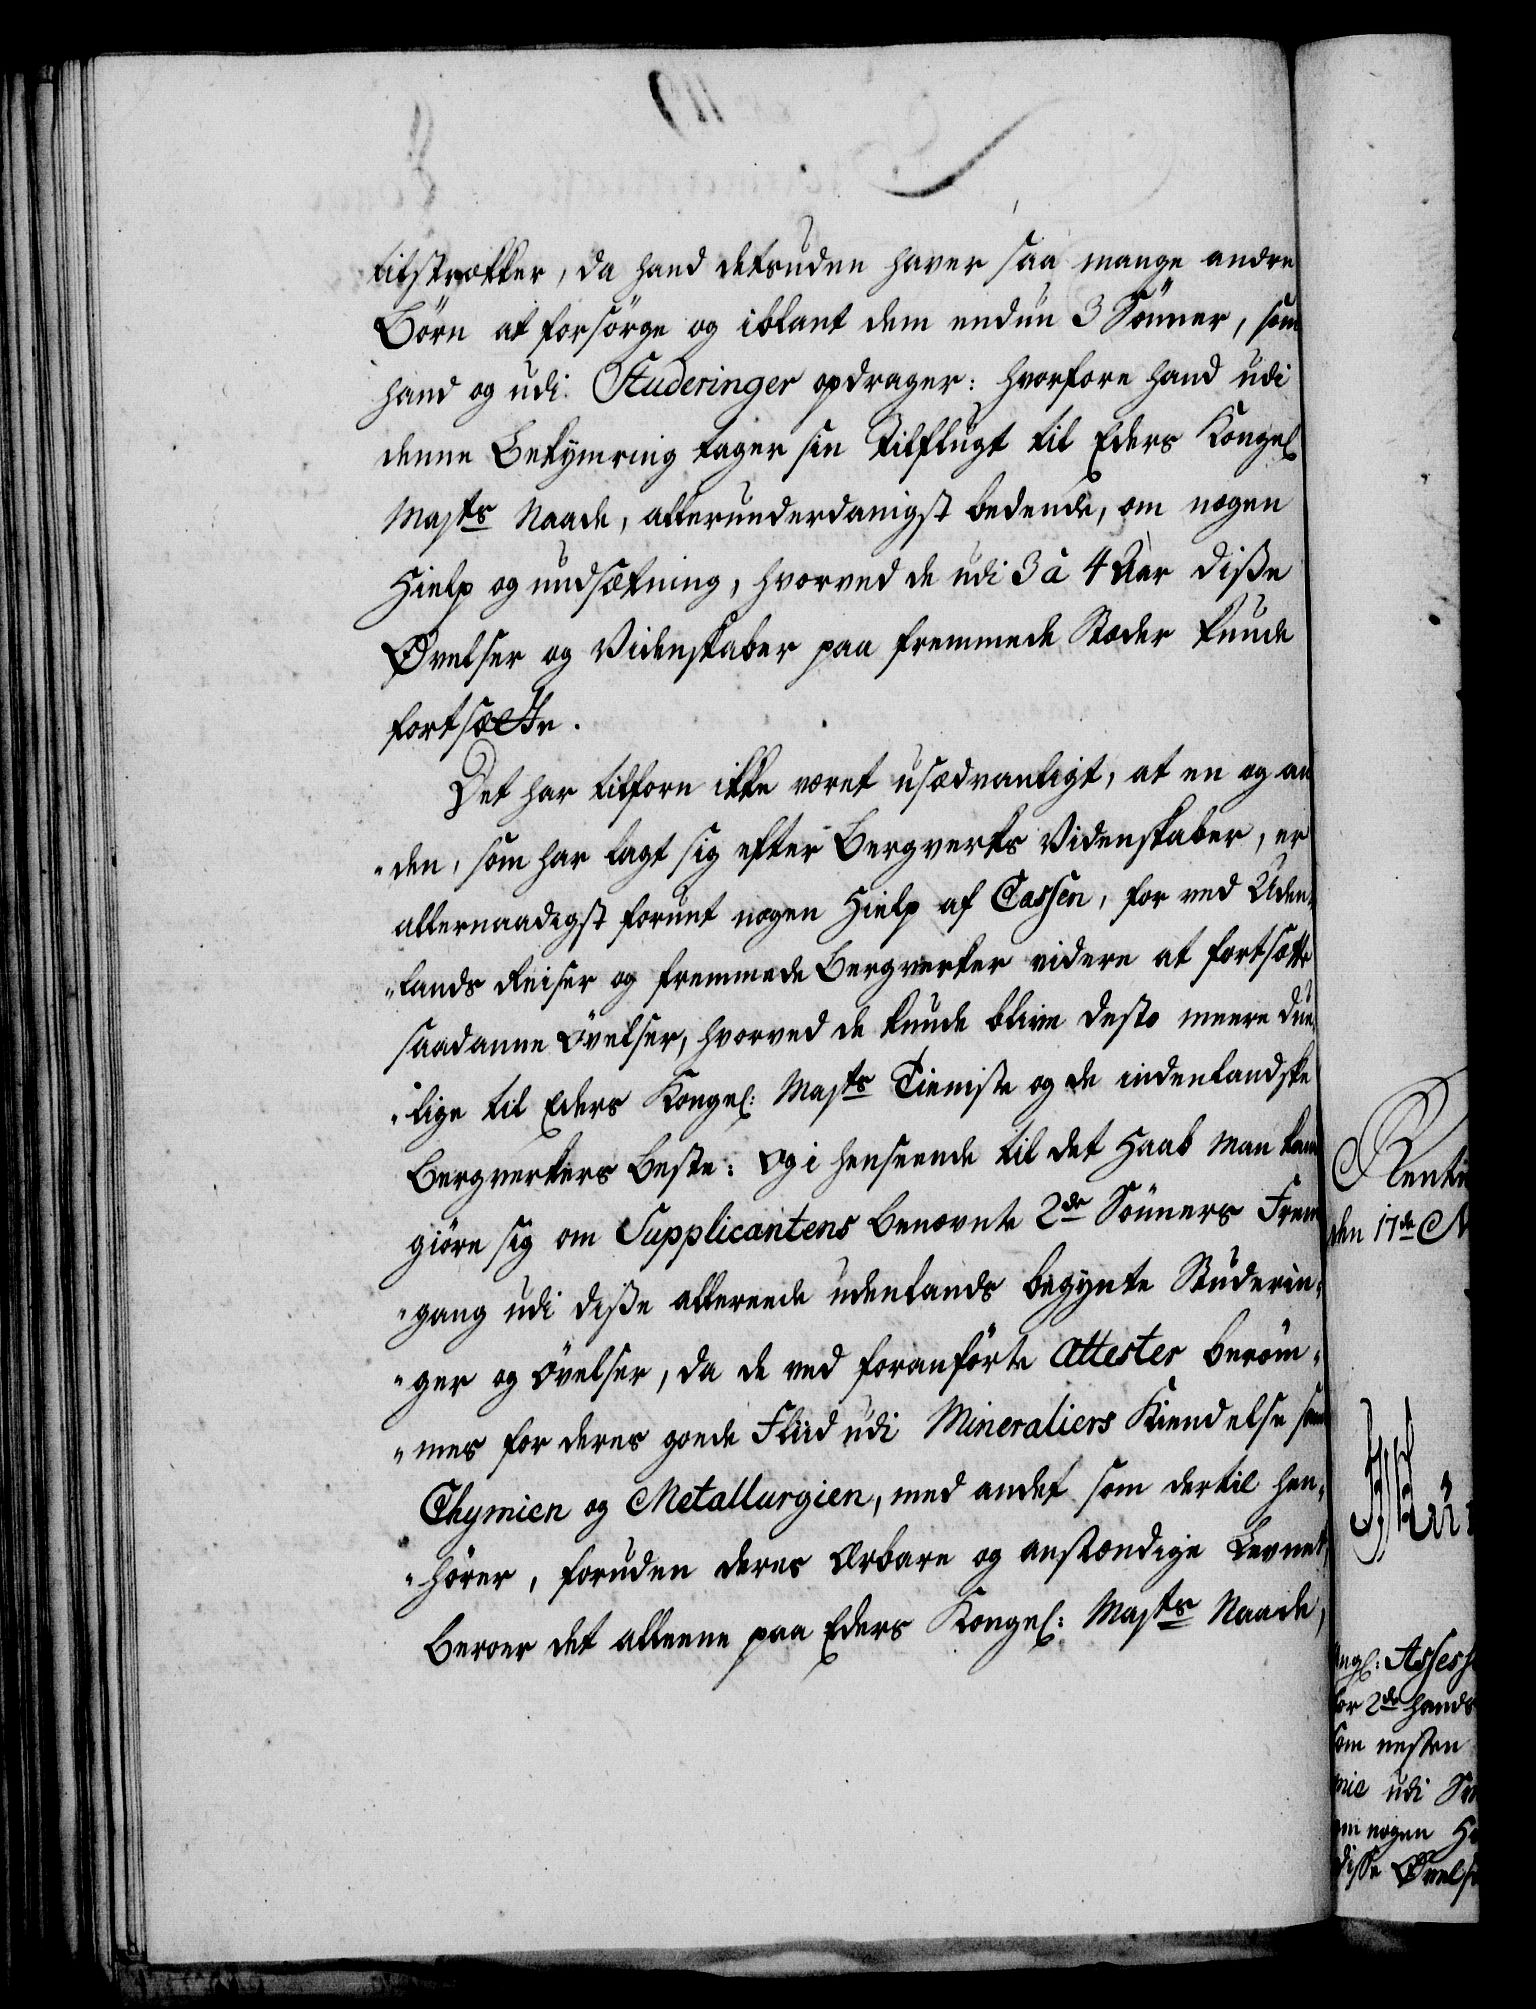 tilstrækker, da hand desuden haver saa mange andre
Börn at forsörge og iblant dem endnu 3 Sönner, som
hand og udi Studeringer opdrager: hvorfore hand udi
denne Bekymring tager sin Tilflugt til Eders Kongel
Maysts Naade, allerunderdanigst bedende, om nogen
Hielp og undsætning, hvorved de udi 3 à 4 Aar diße
Øvelser og Videnskaber paa fremmede Stæder kunde
fortsætte.
Det har tilforn ikke været usædvanligt, at en og an
"den, som har lagt sig efter Bergverks Videnskaber, er
allernaadigst forunt nogen Hielp af Cassen, for ved Uden„
"lands Reiser og fremmede Bergverker videre at fortsætte
saadanne Övelser, hvorved de kunde blive desto meere due
"lige til Eders Kongel: Maysts Tieniste og de indenlandske
Bergverkers Beste: Og i henseende til det Haab man kand
giöre sig om Supplicantens Benævnte 2de Sönners Frem
"gang udi diße allereede udenlands begynte Studerin„
"ger og Övelser, da de ved foranförte Attester beröm„
"mes for deres goede Fliid udi Mineraliers Kiendelse samt
Chymien og Metallurgien, med andet som dertil hen„
"hörer, foruden deres Ærbare og anstændige Levnet,
Beroer det alleene paa Eders Kongel: Maysts Naade,
Rente
den 17de M
Kongl: Assess
for 2de hands
som nesten
mie udi
om nogen
disse Øvels